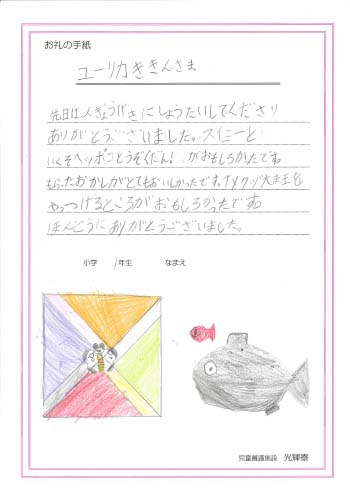 お礼の手紙
ユーリカききんさま
先日は人ぎょうげきにしょうたいしてくださり
ありがとうございました。スイミーと
いくぞヘッポコとうぞくだん!がおもしろかったです
もらったおかしがとてもおいしかったです。ナメクジ大ま王を
やっつけるところがおもしろかったです
ほんとうにありがとうございました。
小学 1年生 なまえ
児童養護施設 光輝寮